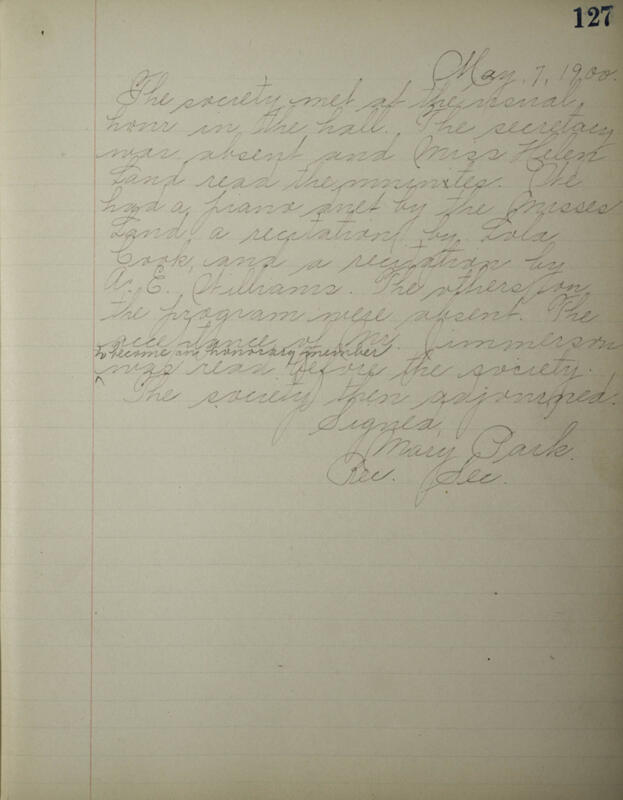 127
May. 7, 1900.
The society met at the usual
hour in the hall. The secretary
was absent and Miss Helen
Land read the minutes. We
had a piano duet by the Misses
Land, a recitation by Lola
Cook, and a recitation by
A. E. Williams. The others on
the program were absent. The
acceptance of Mr. Jimmerson
to become an honorary member
^ was read before the society.
The society then adjourned.
Signed,
Mary Park.
Rec. Sec.